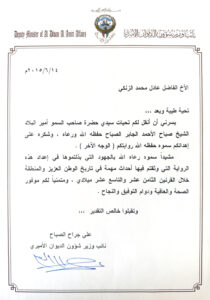 Deputy Minister of Al Diwan Al Amiri Affairs
نائب وزير شؤون الديوان الأميري
٢٠١٥/٦/١٤م
الأخ الفاضل عادل محمد الزنكي
تحية طيبة وبعد ...
يسرني أن أنقل لكم تحيات سيدي حضرة صاحب السمو أمير البلاد
الشيخ صباح الأحمد الجابر الصباح حفظه الله ورعاه ، وشكره على
إهدائكم سموه حفظه الله روايتكم ( الوجه الآخر ) .
مشيدا سموه رعاه الله بالجهود التي بذلتموها في إعداد هذه
الرواية والتي وثقتم فيها أحداث مهمة في تاريخ الوطن العزيز والمنطقة
خلال القرنين الثامن عشر والتاسع عشر ميلادي ، ومتمنيا لكم موفور
الصحة والعافية ودوام التوفيق والنجاح .
وتقبلوا خالص التقدير ...
علي جراح الصباح
نائب وزير شؤون الديوان الأميري